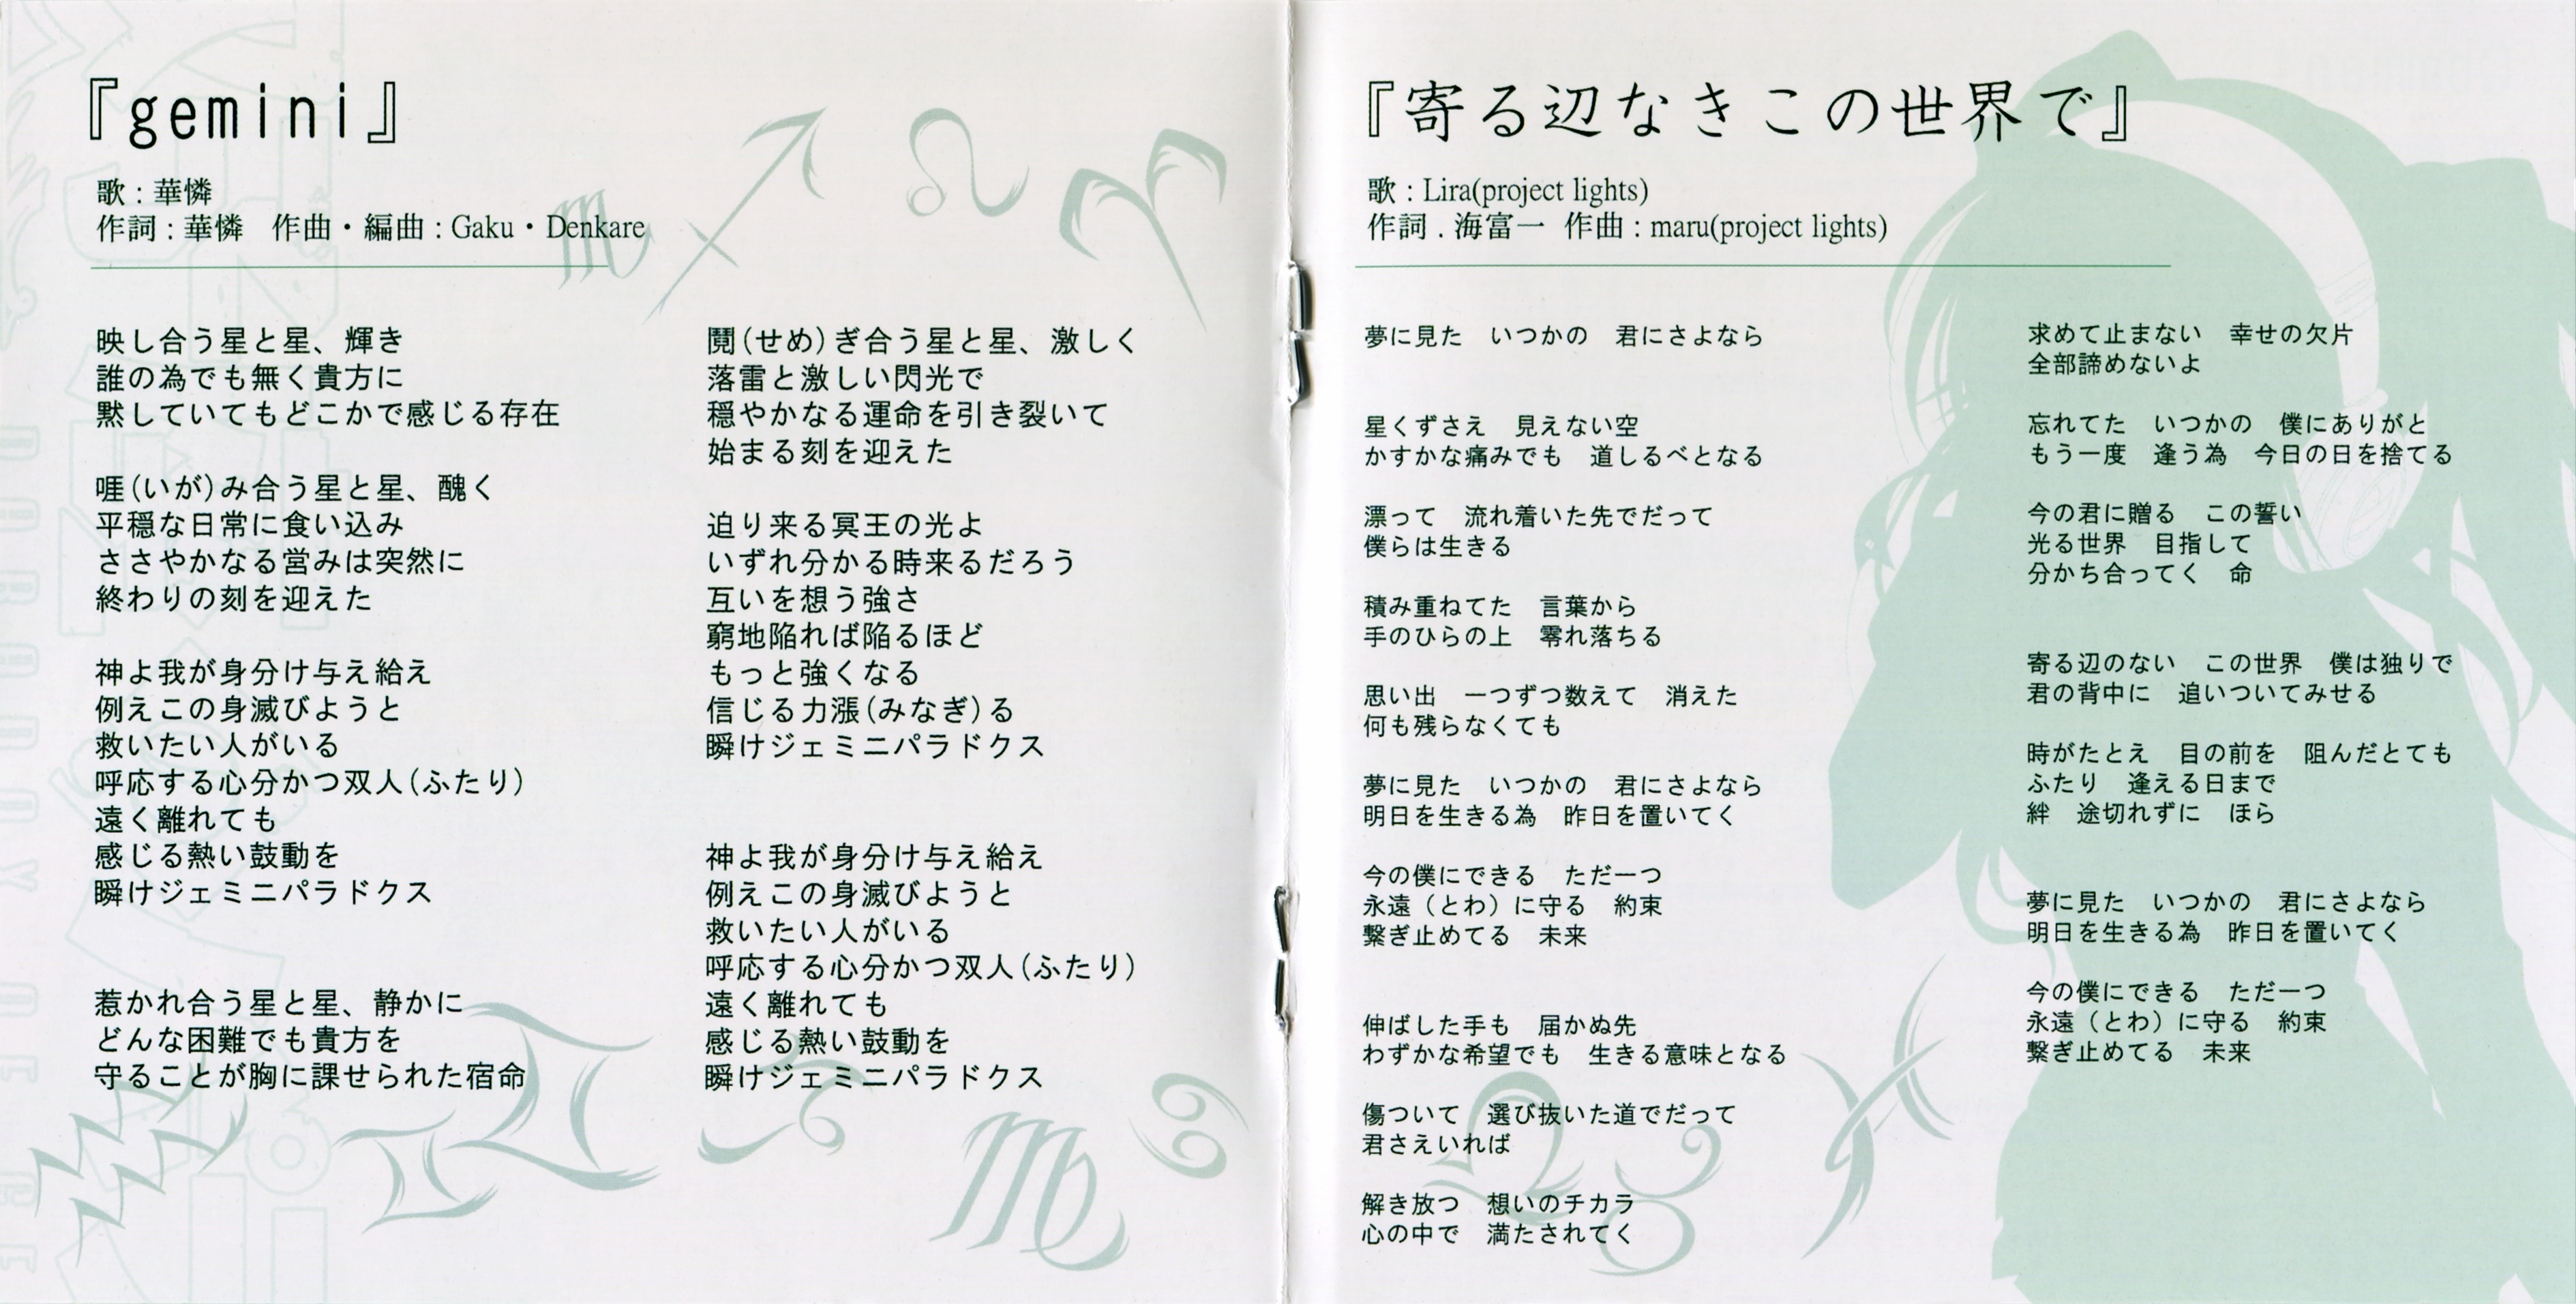 『gemini』
歌：華憐
作詞：華憐　作曲・編曲：Gaku・Denkare
映し合う星と星、輝き
誰の為でも無く貴方に
黙していてもどこかで感じる存在
啀(いが)み合う星と星、醜く
平穏な日常に食い込み
ささやかなる営みは突然に
終わりの刻を迎えた
神よ我が身分け与え給え
例えこの身滅びようと
救いたい人がいる
呼応する心分かつ双人(ふたり)
遠く離れても
感じる熱い鼓動を
瞬けジェミニパラドクス
惹かれ合う星と星、静かに
どんな困難でも貴方を
守ることが胸に課せられた宿命
鬩(せめ)ぎ合う星と星、激しく
落雷と激しい閃光で
穏やかなる運命を引き裂いて
始まる刻を迎えた
迫り来る冥王の光よ
いずれ分かる時来るだろう
互いを想う強さ
窮地陥れば陥るほど
もっと強くなる
信じる力漲(みなぎ)る
瞬けジェミニパラドクス
神よ我が身分け与え給え
例えこの身滅びようと
救いたい人がいる
呼応する心分かつ双人(ふたり)
遠く離れても
感じる熱い鼓動を
瞬けジェミニパラドクス
『寄る辺なきこの世界で』
歌：Lira(project lights)
作詞．海富一　作曲：maru(project lights)
夢に見た　いつかの　君にさよなら
星くずさえ　見えない空
かすかな痛みでも　道しるべとなる
漂って　流れ着いた先でだって
僕らは生きる
積み重ねてた　言葉から
手のひらの上　零れ落ちる
思い出　一つずつ数えて　消えた
何も残らなくても
夢に見た　いつかの　君にさよなら
明日を生きる為　昨日を置いてく
今の僕にできる　ただ一つ
永遠（とわ）に守る　約束
繋ぎ止めてる　未来
伸ばした手も　届かぬ先
わずかな希望でも　生きる意味となる
傷ついて　選び抜いた道でだって
君さえいれば
解き放つ　想いのチカラ
心の中で　満たされてく
求めて止まない　幸せの欠片
全部諦めないよ
忘れてた　いつかの　僕にありがと
もう一度　逢う為　今日の日を捨てる
今の君に贈る　この誓い
光る世界　目指して
分かち合ってく　命
寄る辺のない　この世界　僕は独りで
君の背中に　追いついてみせる
時がたとえ　目の前を　阻んだとても
ふたり　逢える日まで
絆　途切れずに　ほら
夢に見た　いつかの　君にさよなら
明日を生きる為　昨日を置いてく
今の僕にできる　ただ一つ
永遠（とわ）に守る　約束
繋ぎ止めてる　未来